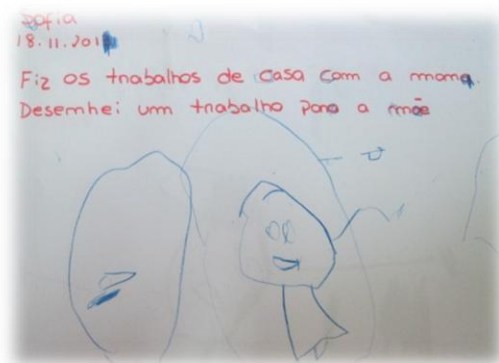 Sofia
Fiz os trabalhos de casa com a mana.
Desenhei um trabalho para a mãe